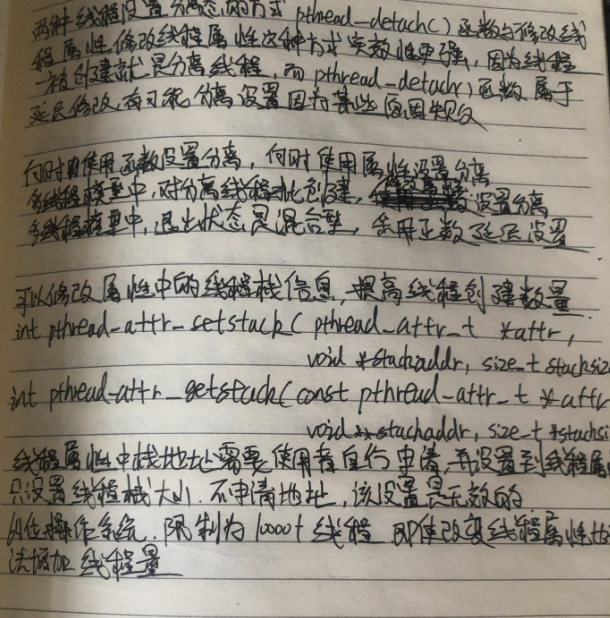 两种线程设置分离态的方式 pthread_detach() 函数与修改线
程属性,修改线程属性这种方式实效性更强,因为线程
一被创建就是分离线程,而 pthread_detach() 函数属于
延后修改,有可能分离设置因为某些原因失败
何时使用函数设置分离,何时使用属性设置分离
多线程模型中,对分离线程批量创建,设置分离
多线程模型中,退出状态是混合型,采用函数延后设置
可以修改属性中的线程栈信息,提高线程创建数量
int pthread_attr_setstack( pthread_attr_t *attr,
void *stackaddr, size_t stacksize
int pthread_attr_getstack(const pthread_attr_t *attr
void **stackaddr, size_t *stacksi
线程属性中栈地址需要使用者自行申请,再设置到线程属
只设置线程栈大小,不申请地址,该设置是无效的
位操作系统,限制为 10000+ 线程 即使改变线程属性也
法增加线程量